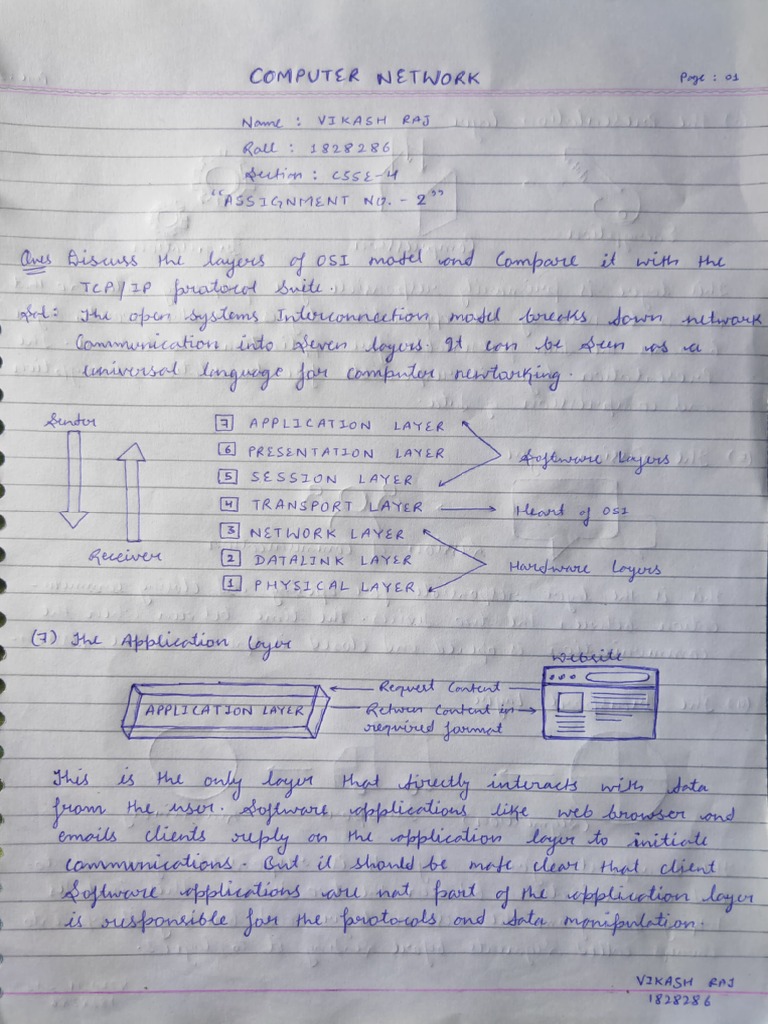 COMPUTER NETWORK
Page : 01
Name : VIKASH RAJ
Roll : 1828286
Section : CSSE-4
"ASSIGNMENT NO. - 2"
Ques Discuss the layers of OSI model and Compare it with the
TCP/IP protocol Suite.
Sol: The open Systems Interconnection model breaks down network
Communication into Seven layers. It can be Seen as a
universal language for computer newtorking.
Sender
Receiver
7 APPLICATION LAYER
6 PRESENTATION LAYER
5 SESSION LAYER
4 TRANSPORT LAYER
3 NETWORK LAYER
2 DATALINK LAYER
1 PHYSICAL LAYER
Software layers
Heart of OSI
Hardware layers
(7) The Application layer
APPLICATION LAYER
Request Content
Return Content in
required format
Website
This is the only layer that directly interacts with data
from the user. Software applications like web browser and
emails clients reply on the application layer to initiate
communications. But it should be made clear that client
Software applications are not part of the application layer
is responsible for the protocols and data manipulation.
VIKASH RAJ
1828286